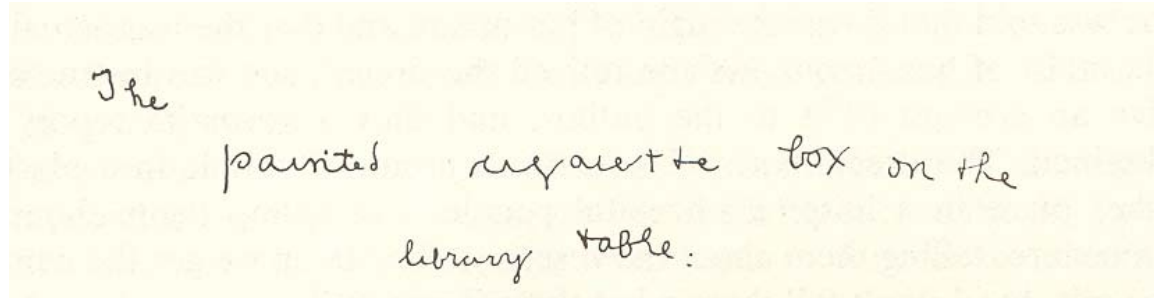 The
painted cigarette box on the
library table.